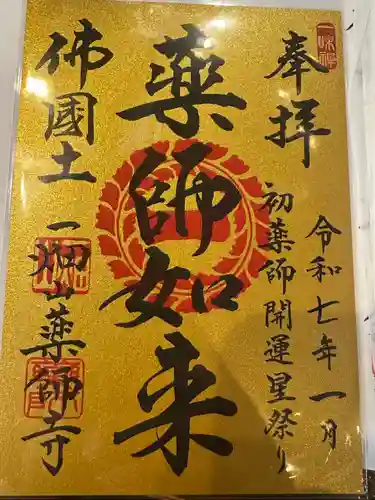 奉拝
令和七年一月
初薬師開運星祭り
薬師如来
佛國土
一畑山薬師寺